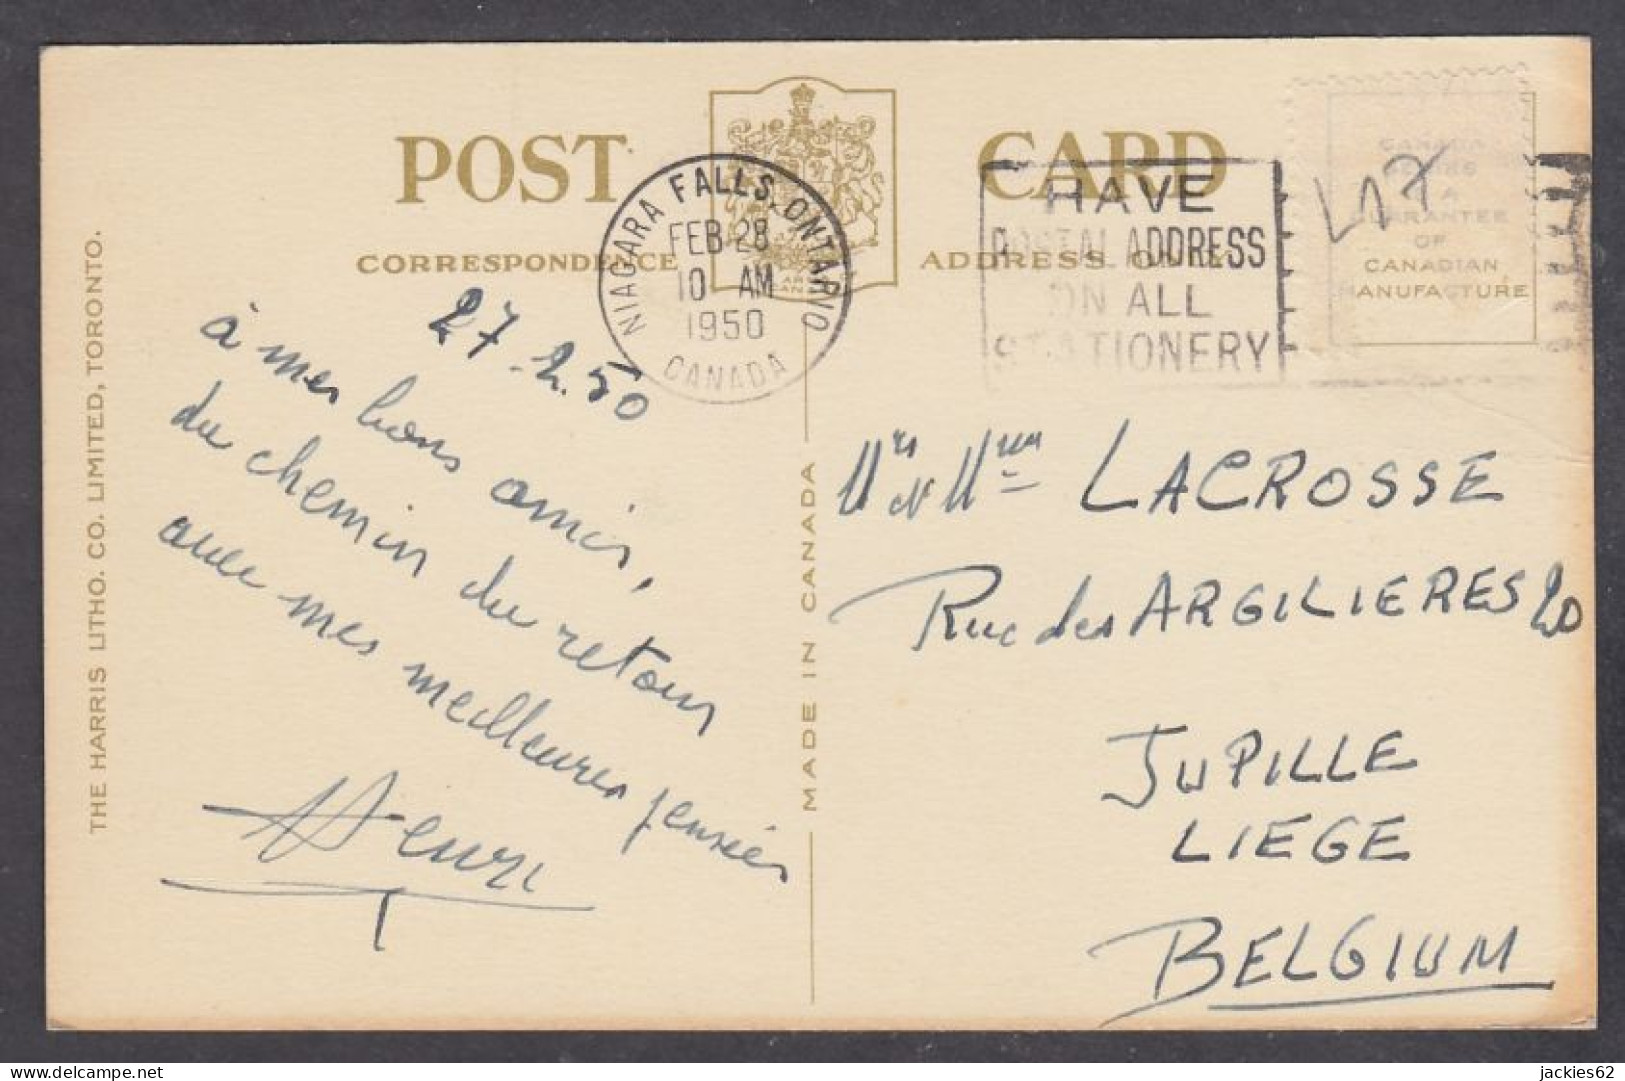 POST CARD
CORRESPONDENCE
ADDRESS ONLY
NIAGARA FALLS, ONTARIO
FEB 28
10 AM
1950
CANADA
HAVE
POSTAL ADDRESS
ON ALL
STATIONERY
CANADA
A
GUARANTEE
OF
CANADIAN
MANUFACTURE
THE HARRIS LITHO. CO. LIMITED, TORONTO.
MADE IN CANADA
27.2.50
à mes bons amis,
du chemin du retour
avec mes meilleures pensées
Henri
LACROSSE
Rue des ARGILIERES 20
JUPILLE
LIEGE
BELGIUM
delcampe.net
jackies62